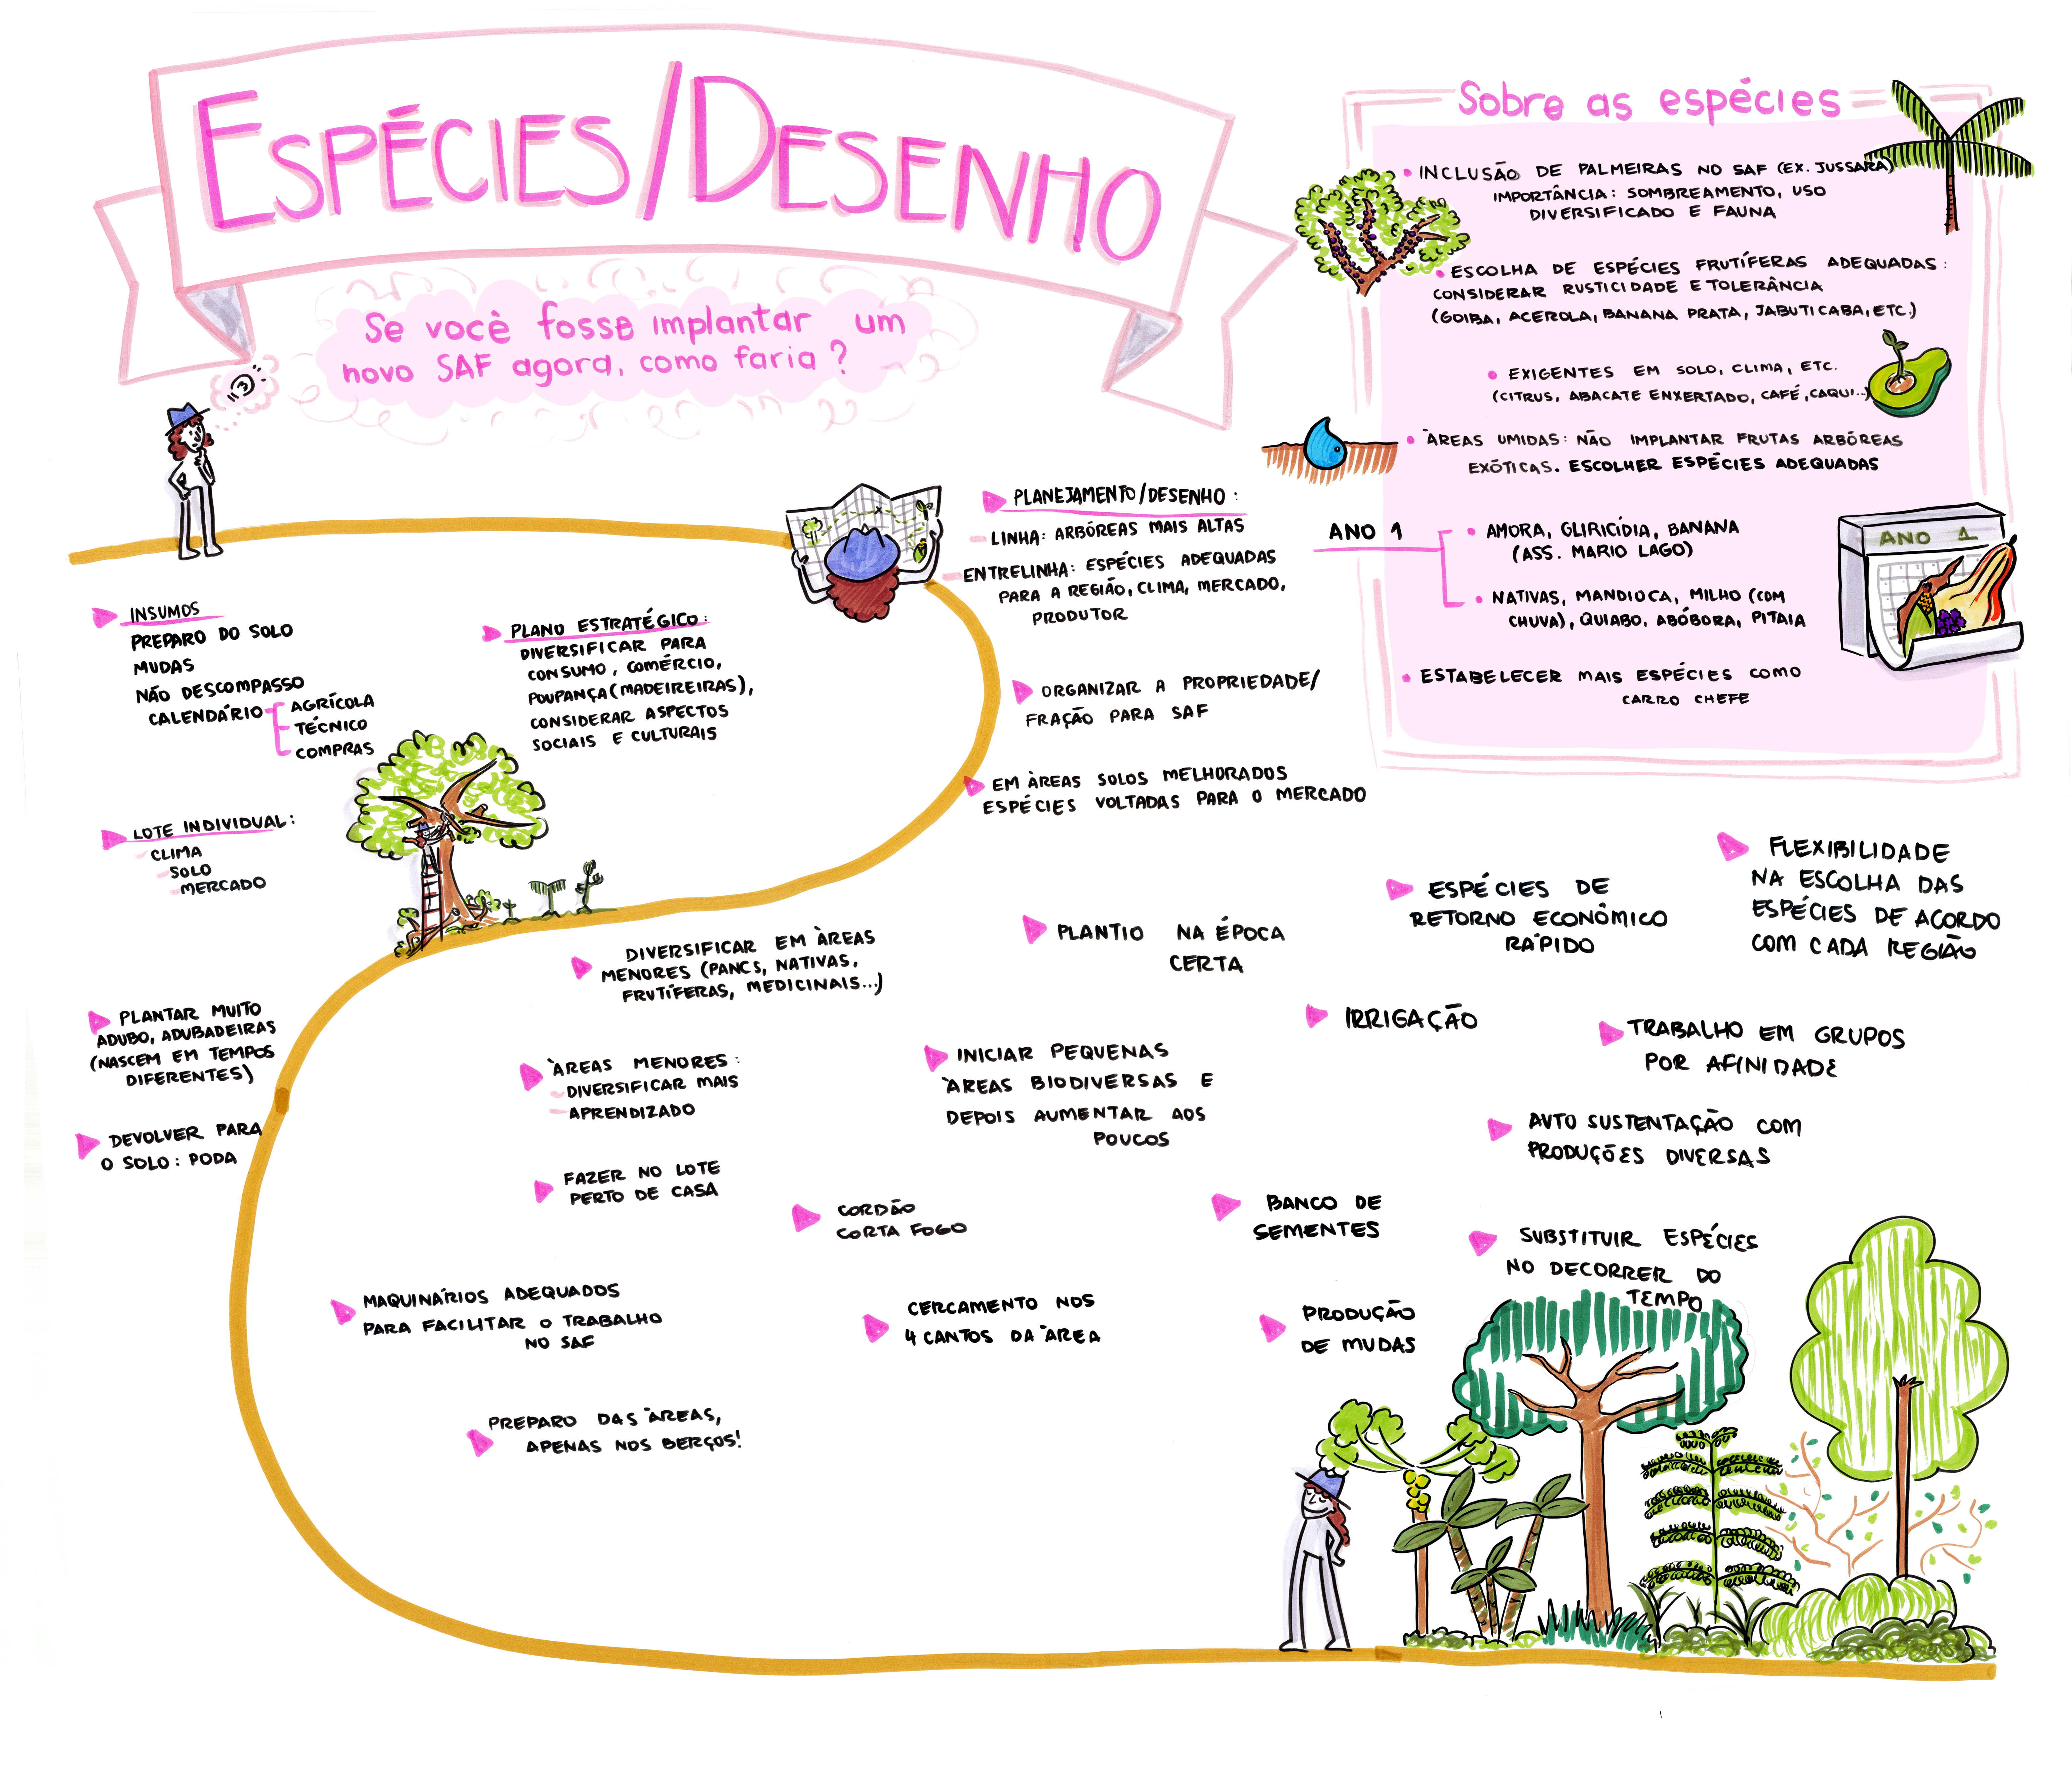 ESPÉCIES/DESENHO
Se você fosse implantar um
novo SAF agora, como faria?
INSUMOS
PREPARO DO SOLO
MUDAS
NÃO DESCOMPASSO
CALENDÁRIO
AGRÍCOLA
TÉCNICO
COMPRAS
PLANO ESTRATÉGICO:
DIVERSIFICAR PARA
CONSUMO, COMÉRCIO,
POUPANÇA (MADEIREIRAS),
CONSIDERAR ASPECTOS
SOCIAIS E CULTURAIS
PLANEJAMENTO/DESENHO:
- LINHA: ARBÓREAS MAIS ALTAS
- ENTRELINHA: ESPÉCIES ADEQUADAS
PARA A REGIÃO, CLIMA, MERCADO,
PRODUTOR
ORGANIZAR A PROPRIEDADE/
FRAÇÃO PARA SAF
EM ÀREAS SOLOS MELHORADOS
ESPÉCIES VOLTADAS PARA O MERCADO
LOTE INDIVIDUAL:
- CLIMA
- SOLO
- MERCADO
PLANTAR MUITO
ADUBO, ADUBADEIRAS
(NASCEM EM TEMPOS
DIFERENTES)
DEVOLVER PARA
O SOLO: PODA
DIVERSIFICAR EM ÀREAS
MENORES (PANCS, NATIVAS,
FRUTÍFERAS, MEDICINAIS...)
ÀREAS MENORES:
- DIVERSIFICAR MAIS
- APRENDIZADO
FAZER NO LOTE
PERTO DE CASA
MAQUINÁRIOS ADEQUADOS
PARA FACILITAR O TRABALHO
NO SAF
PREPARO DAS ÀREAS,
APENAS NOS BERÇOS!
PLANTIO NA ÉPOCA
CERTA
INICIAR PEQUENAS
ÀREAS BIODIVERSAS E
DEPOIS AUMENTAR AOS
POUCOS
CORDÃO
CORTA FOGO
CERCAMENTO NOS
4 CANTOS DA ÀREA
ESPÉCIES DE
RETORNO ECONÔMICO
RÁPIDO
FLEXIBILIDADE
NA ESCOLHA DAS
ESPÉCIES DE ACORDO
COM CADA REGIÃO
IRRIGAÇÃO
TRABALHO EM GRUPOS
POR AFINIDADE
AUTO SUSTENTAÇÃO COM
PRODUÇÕES DIVERSAS
BANCO DE
SEMENTES
SUBSTITUIR ESPÉCIES
NO DECORRER DO
TEMPO
PRODUÇÃO
DE MUDAS
Sobre as espécies
• INCLUSÃO DE PALMEIRAS NO SAF (EX. JUSSARA)
IMPORTÂNCIA: SOMBREAMENTO, USO
DIVERSIFICADO E FAUNA
• ESCOLHA DE ESPÉCIES FRUTÍFERAS ADEQUADAS:
CONSIDERAR RUSTICIDADE E TOLERÂNCIA
(GOIBA, ACEROLA, BANANA PRATA, JABUTICABA, ETC.)
• EXIGENTES EM SOLO, CLIMA, ETC.
(CITRUS, ABACATE ENXERTADO, CAFÉ, CAQUI...)
• ÀREAS UMIDAS: NÃO IMPLANTAR FRUTAS ARBÓREAS
EXÓTICAS. ESCOLHER ESPÉCIES ADEQUADAS
ANO 1
• AMORA, GLIRICÍDIA, BANANA
(ASS. MARIO LAGO)
• NATIVAS, MANDIOCA, MILHO (COM
CHUVA), QUIABO, ABÓBORA, PITAIA
ANO 1
• ESTABELECER MAIS ESPÉCIES COMO
CARRO CHEFE